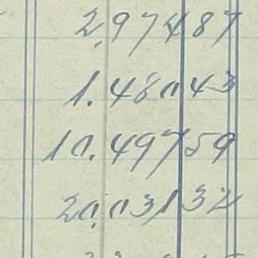 2.97487
1.48043
10.49759
20.03132